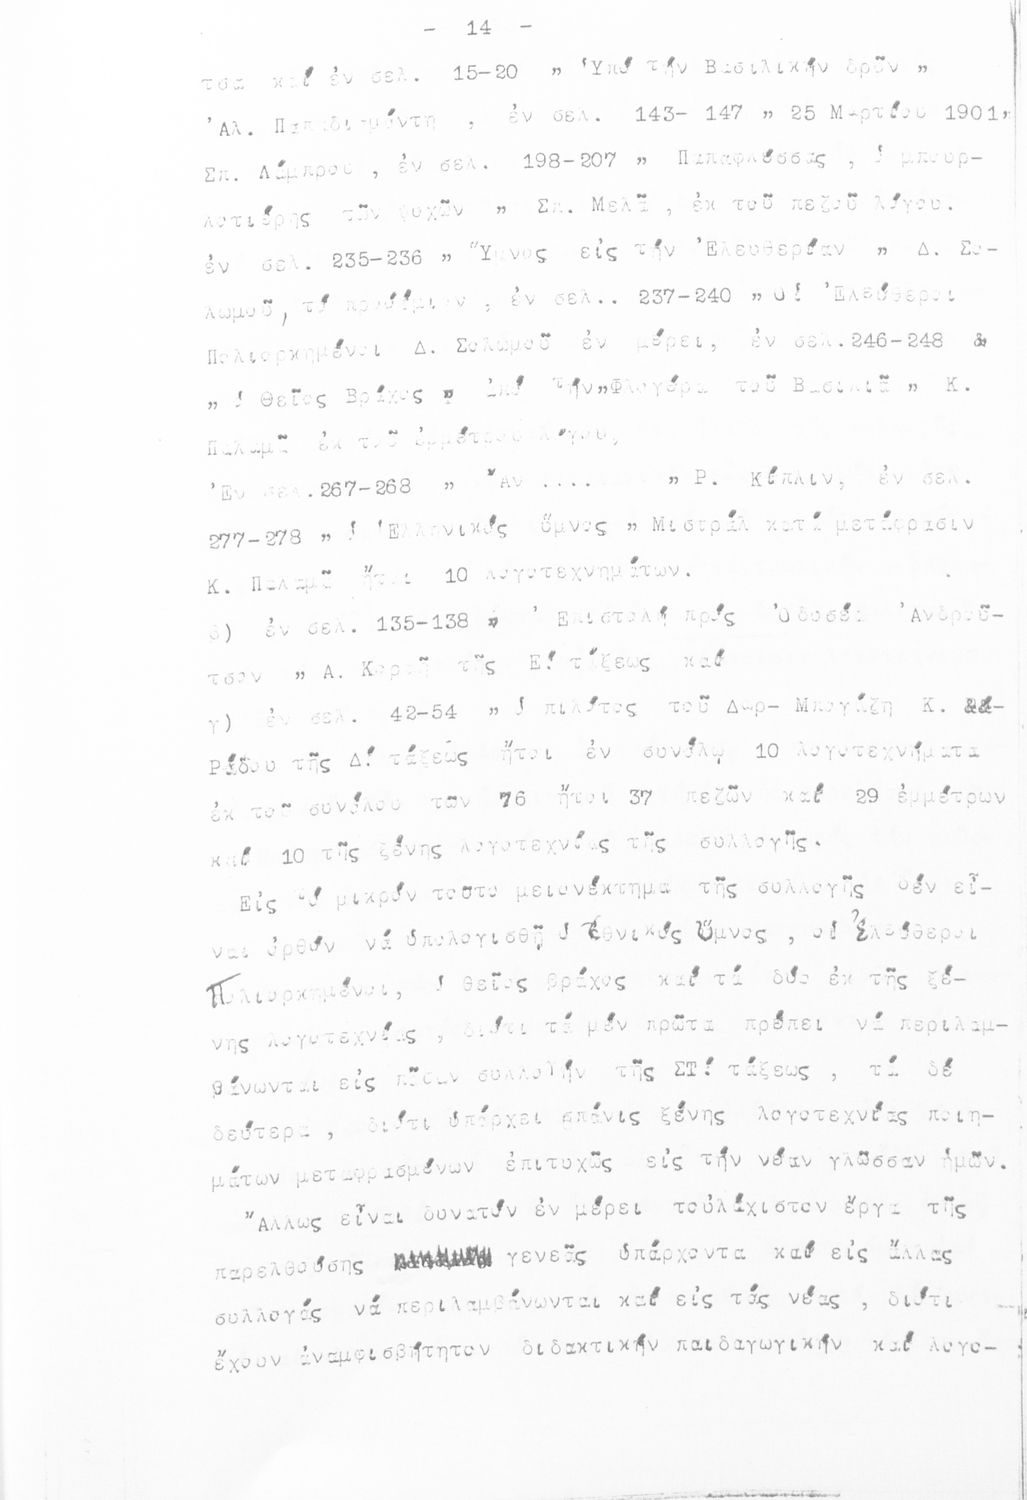 - 14 -
τσα καί ἐν σελ. 15-20 „ Ὑπό τήν Βασιλικήν δρῦν „
Ἀλ. Παπαδιαμάντη , ἐν σελ. 143- 147 „ 25 Μαρτίου 1901„
Σπ. Λάμπρου , ἐν σελ. 198-207 „ Παπαφλέσσας , ὁ μπουρ-
λοτιέρης τῶν ψυχῶν „ Σπ. Μελᾶ , ἐκ τοῦ πεζοῦ λόγου.
ἐν σελ. 235-236 „ Ὕμνος εἰς τήν Ἐλευθερίαν „ Δ. Σο-
λωμοῦ, τό προοίμιον , ἐν σελ.. 237-240 „ Οἱ Ἐλεύθεροι
Πολιορκημένοι Δ. Σολωμοῦ ἐν μέρει, ἐν σελ.246-248 &
„ ὁ Θεῖος Βράχος „ ἀπό τήν„Φλογέρα τοῦ Βασιλιᾶ „ Κ.
Παλαμᾶ ἐκ τοῦ ἐμμέτρου λόγου,
Ἐν σελ.267-268 „ Ἄν .... „ Ρ. Κίπλιν, ἐν σελ.
277-278 „ ὁ Ἑλληνικός ὕμνος „ Μιστράλ κατά μετάφρασιν
Κ. Παλαμᾶ ἤτοι 10 λογοτεχνημάτων.
β) ἐν σελ. 135-138 „ Ἐπιστολή πρός Ὀδυσέα Ἀνδροῦ-
τσον „ Α. Κοραῆ τῆς Ε! τάξεως καί
γ) ἐν σελ. 42-54 „ ὁ πιλότος τοῦ Δαρ- Μπογάζη Κ. &&-
Ράδου τῆς Δ! τάξεως ἤτοι ἐν συνόλῳ 10 λογοτεχνήματα
ἐκ τοῦ συνόλου τῶν 76 ἤτοι 37 πεζῶν καί 29 ἐμμέτρων
καί 10 τῆς ξένης λογοτεχνίας τῆς συλλογῆς.
Εἰς τό μικρόν τοῦτο μειονέκτημα τῆς συλλογῆς δέν εἶ-
ναι ὀρθόν νά ὑπολογισθῇ ὁ Ἐθνικός Ὕμνος , οἱ Ἐλεύθεροι
Πολιορκημένοι, ὁ θεῖος βράχος καί τά δύο ἐκ τῆς ξέ-
νης λογοτεχνίας , διότι τά μέν πρῶτα πρέπει νά περιλαμ-
βάνωνται εἰς πᾶσαν συλλογήν τῆς ΣΤ! τάξεως , τά δέ
δεύτερα , διότι ὑπάρχει σπάνις ξένης λογοτεχνίας ποιη-
μάτων μεταφρασμένων ἐπιτυχῶς εἰς τήν νέαν γλῶσσαν ἡμῶν.
Ἄλλως εἶναι δυνατόν ἐν μέρει τοὐλάχιστον ἔργα τῆς
παρελθούσης γενεᾶς ὑπάρχοντα καί εἰς ἄλλας
συλλογάς νά περιλαμβάνωνται καί εἰς τάς νέας , διότι
ἔχουν ἀναμφισβήτητον διδακτικήν παιδαγωγικήν καί λογο-